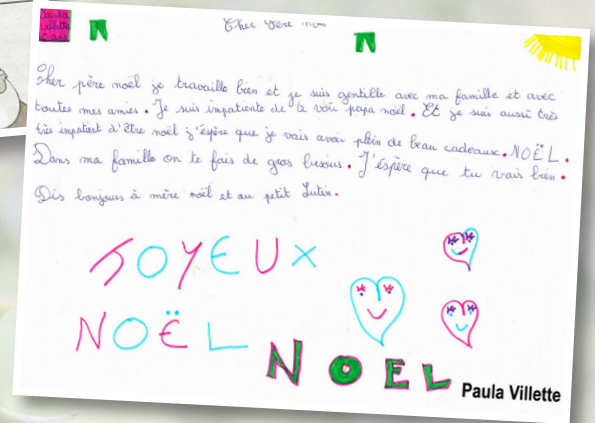 Paula
Villette
Cher père noël
Cher père noël je travaille bien et je suis gentille avec ma famille et avec
toutes mes amies. Je suis impatiente de te voir papa noël. Et je suis aussi très
très impatient d'être noël j'éspère que je vais avoir plein de beau cadeaux. NOËL.
Dans ma famille on te fais de gros bisous. J'éspère que tu vais bien.
Dis bonjours à mère noël et au petit Lutin.
JOYEUX
NOËL
NOEL
Paula Villette